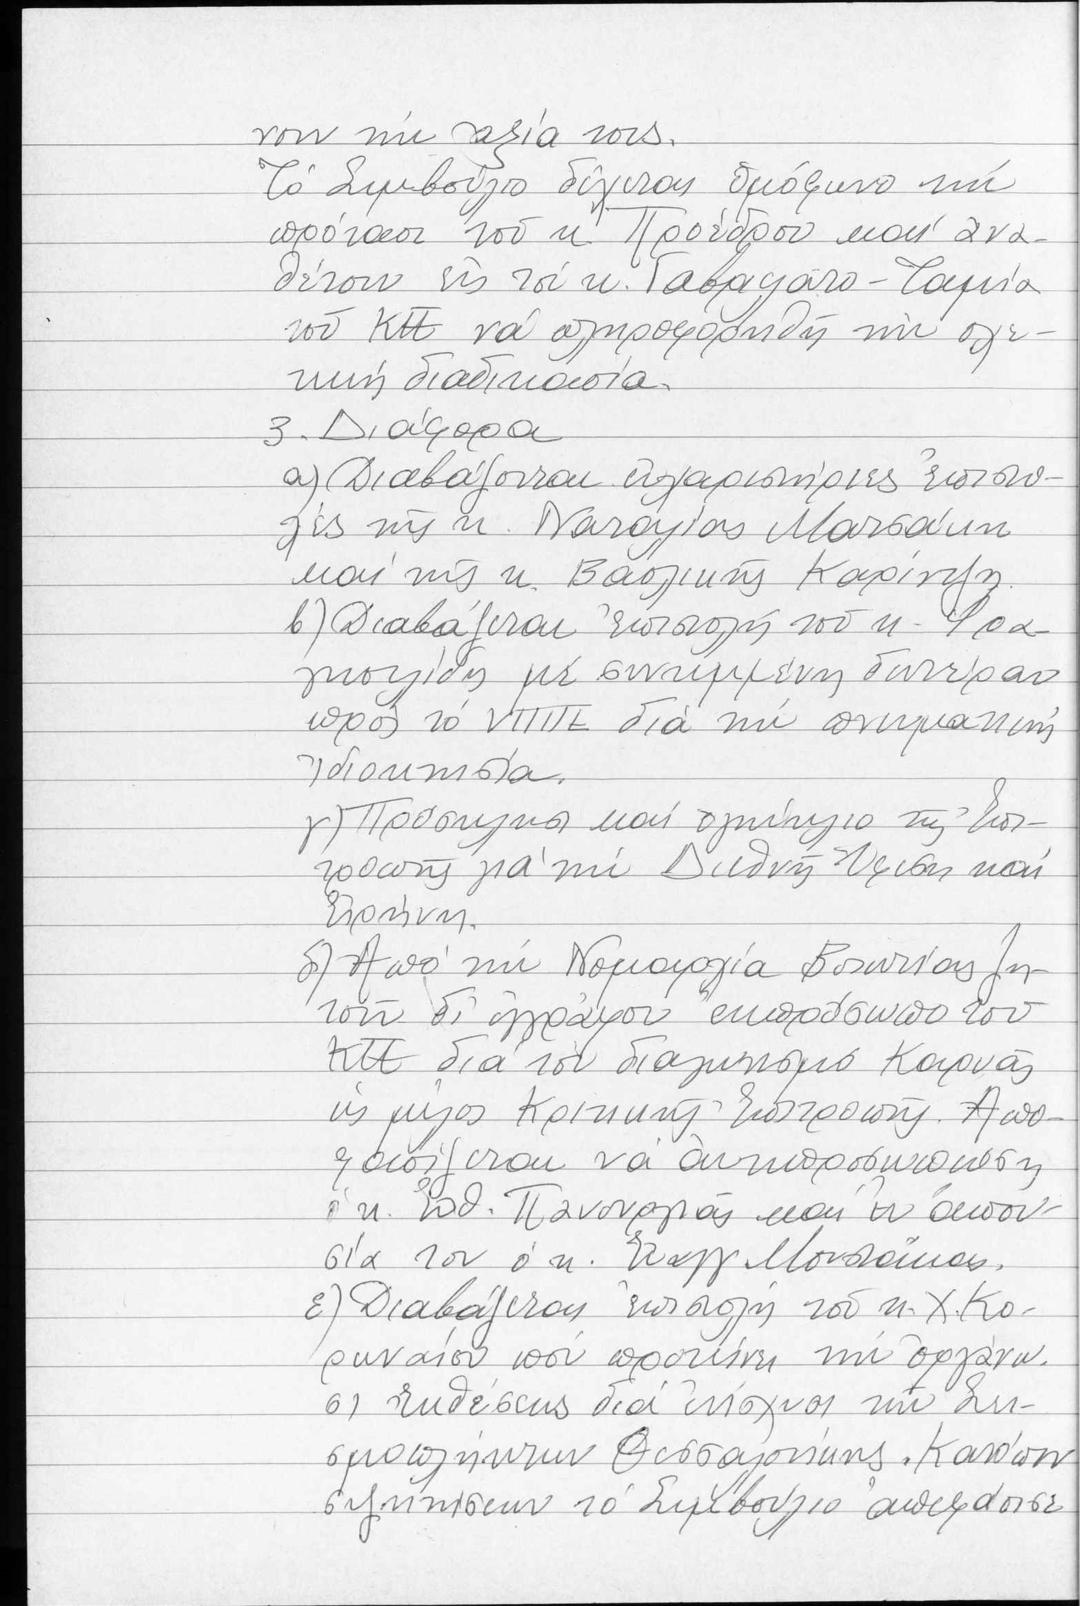 νουν τήν ἀξία τους.
Τό Συμβούλιο δέχεται ὁμόφωνα τήν
πρότασι τοῦ κ. Προέδρου καί ἀνα-
θέτουν εἰς τόν κ. Γαβαλᾶτο - Ταμία
τοῦ ΚΠΕ νά πληροφορηθῆ τήν σχε-
τική διαδικασία.
3. Διάφορα
α) Διαβάζονται εὐχαριστήριες ἐπιστο-
λές τῆς κ. Ναταλίας Ματσάκη
καί τῆς κ. Βασιλικῆς Καρίντζη.
β) Διαβάζεται ἐπιστολή τοῦ κ. Φρα-
γκουλίδη μέ συνημμένη δευτέρα
πρός τό ΥΠΠΕ διά τήν πνευματική
ἰδιοκτησία.
γ) Πρόσκλησι καί ψήφισμα τῆς Ἐπι-
τροπῆς γιά τήν Διεθνῆ Ὕφεση καί
Εἰρήνη.
δ) Ἀπό τήν Νομαρχία Βοιωτίας ζη-
τοῦν δι' ἐγγράφου ἐκπρόσωπο τοῦ
ΚΠΕ διά τόν διαγωνισμό
ὡς μέλος Κριτικῆς Ἐπιτροπῆς. Ἀπο-
φασίζεται νά ἀντιπροσωπεύση
ὁ κ. Εὐθ. Πανουργιᾶς καί ἐν ἀπου-
σία του ὁ κ. Εὐαγγ Μουστάκας.
ε) Διαβάζεται ἐπιστολή τοῦ κ. Χ. Κο-
ρωναίου πού προτείνει τήν ὀργάνω-
σι ἐκθέσεως διά ἐνίσχυσι τῶν Σει-
σμοπλήκτων Θεσσαλονίκης. Κατόπιν
συζητήσεων τό Συμβούλιο ἀπεφάσισε